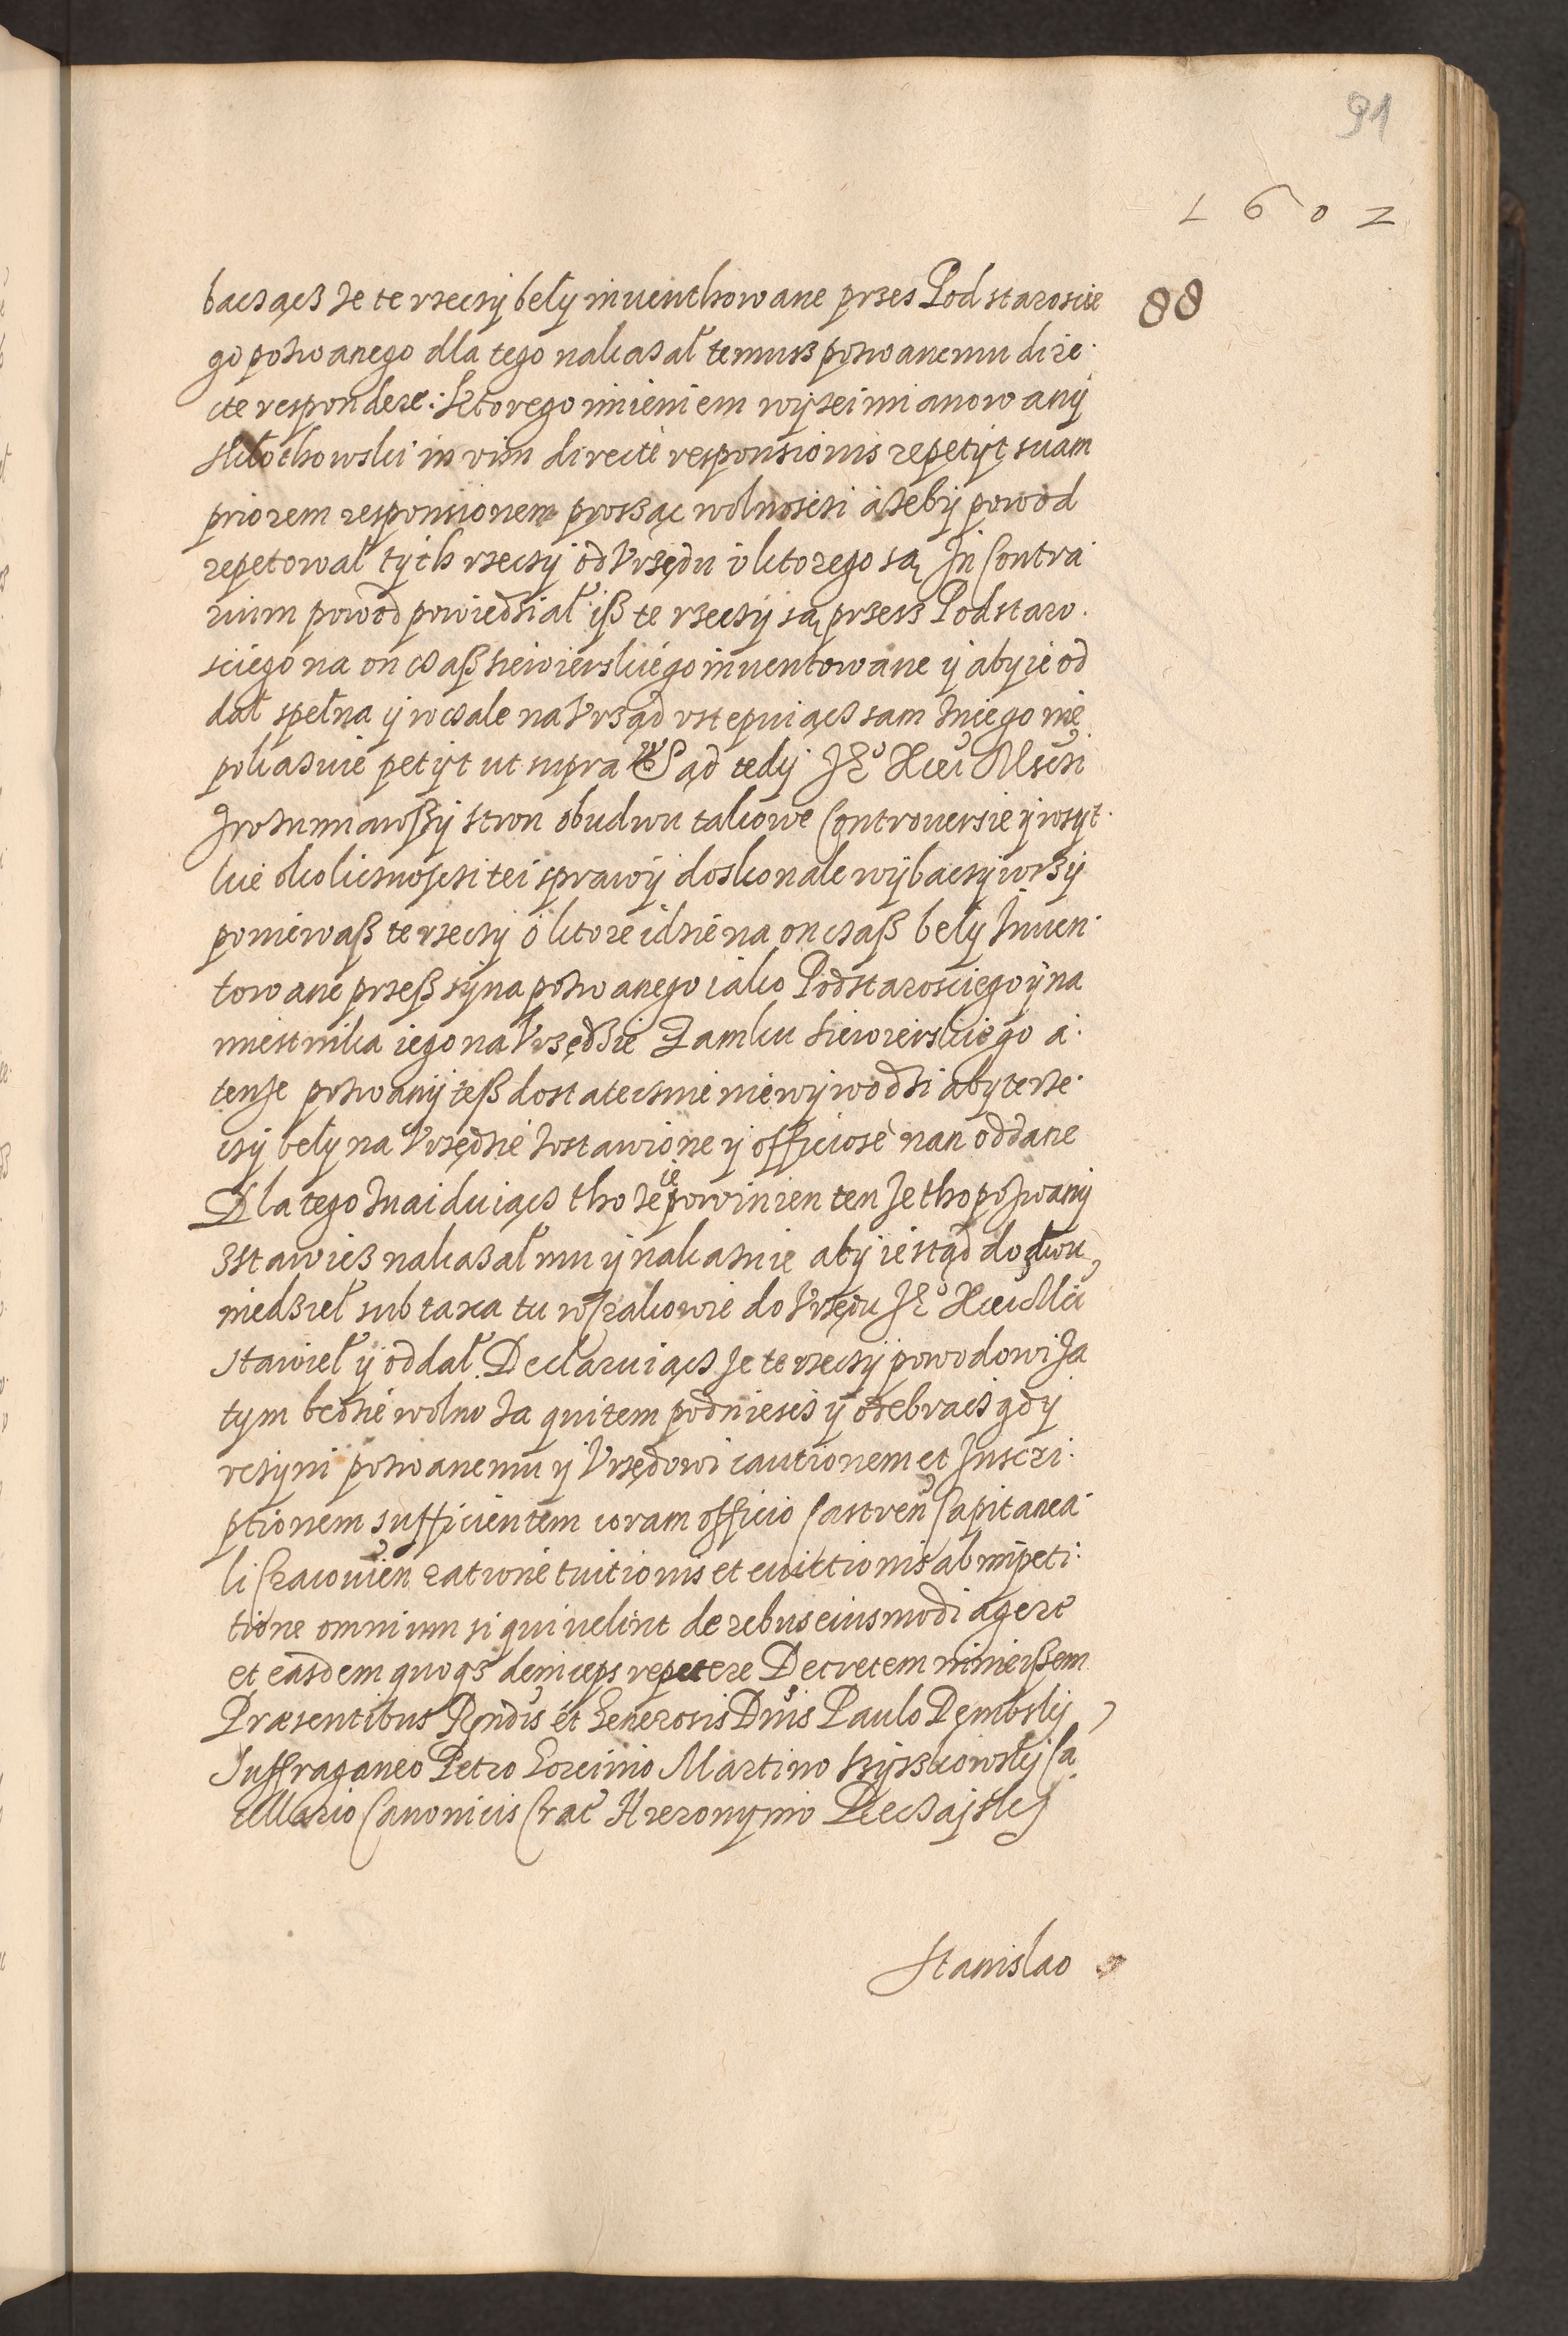 91
1602
88
baczącz ze te rzeczy beły inuenthowane przes Podstaroscie
go pozwanego dla tego nakazał temusz pozwanemu dire
cte respondere: Ktorego imieniem wyzei mianowany
Kłochowski in vim directe responsionis repetyt suam
priorem responsionem prosząc wolnosczi azeby powod
repetował tych rzeczy od Vrzędu v ktorego są In Contra
rium powod powiedział isz te rzeczy są przesz Podstaro
sciego na on czasz Siewierskiego inuentowane y aby ie od
dał spełna y wcale na Vrząd vstepuiącz sam z niego nie
pokazuie petyt ut supra Sąd tedy Je° Xcei Msczi
zrozumiawszy stron obudwu takowe Controuersie y wsyt
kie okolicznosczi tei sprawy doskonale wybaczywszy
poniewasz te rzeczy o ktore idzie na on czasz beły Inuen
towane przesz syna pozwanego iako Podstarosciego y na
miestnika iego na Vrzędzie Zamku Siewierskiego a
tenze pozwany tesz dostatecznie nie wywodzi aby te rze
czy beły na Vrzędzie zostawione y officiose nan oddane
Dla tego znaiduiącz tho ze ie powinien tenze tho pozwany
zstawicz nakazał mu y nakazuie aby ie stąd do dwu
niedziel sub taxa tu w Krakowie do Vrzędu Je° Xcei Mci
stawieł y oddał. Declaruiącz ze te rzeczy powodowi za
tym bedzie wolno za quitem podniescz y odebracz gdy
vczyni pozwanemu y Vrzędowi cautionem et Inscri
ptionem sufficientem coram officio Castren Capitanea
li Cracouien ratione tuitionis et euictionis ab impeti
tione omnium si qui uelint de rebus eiusmodi agere
et easdem quoqz deniceps repetere Decretem
Præsentibus Rndis et Generosis Dnis Paulo Dembsky
Suffraganeo Petro Goreinio Martino Szyszkowsky Ca
Canonicis Crac Hieronymo
Stanislao